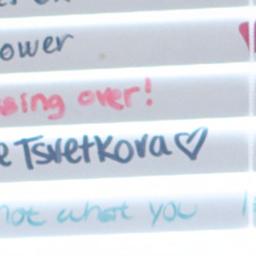 ower
sing over!
e Tsvetkova♡
not what you